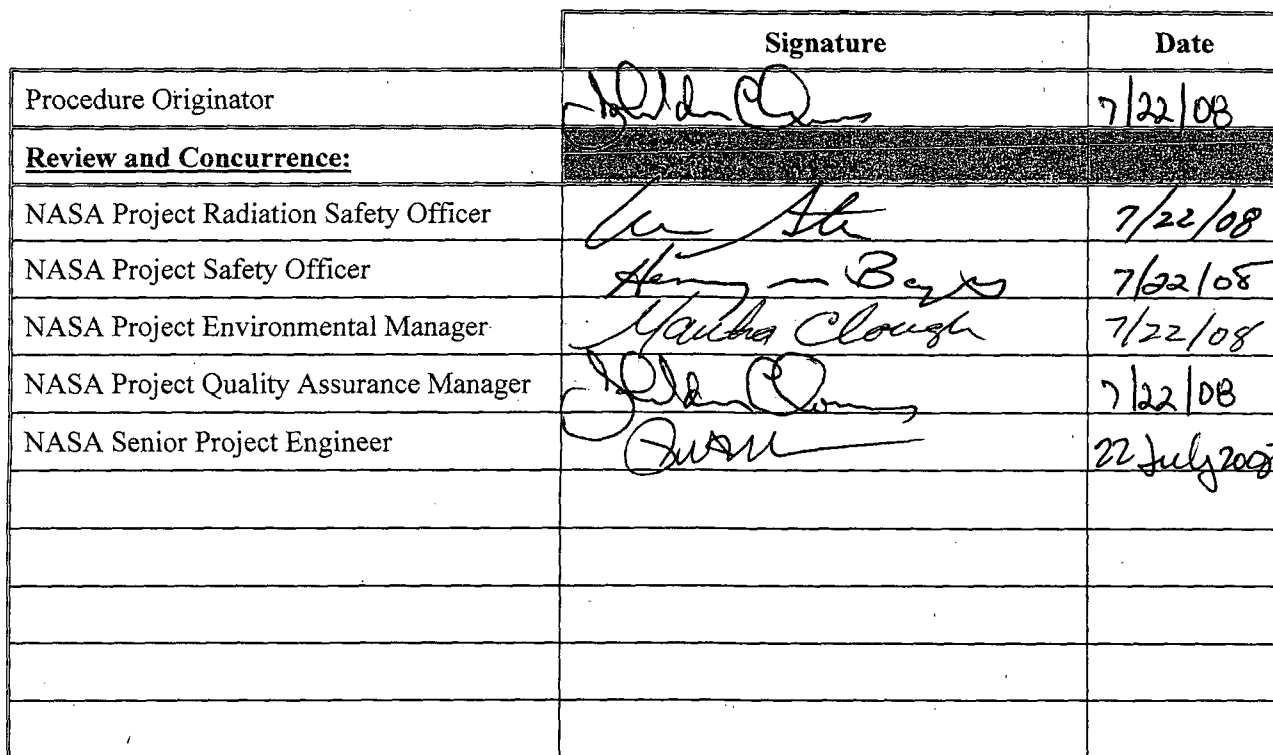 Signature Date
Procedure Originator 7/22/08
Review and Concurrence:
NASA Project Radiation Safety Officer 7/22/08
NASA Project Safety Officer 7/22/08
NASA Project Environmental Manager Martha Clough 7/22/08
NASA Project Quality Assurance Manager 7/22/08
NASA Senior Project Engineer 22 July 2008